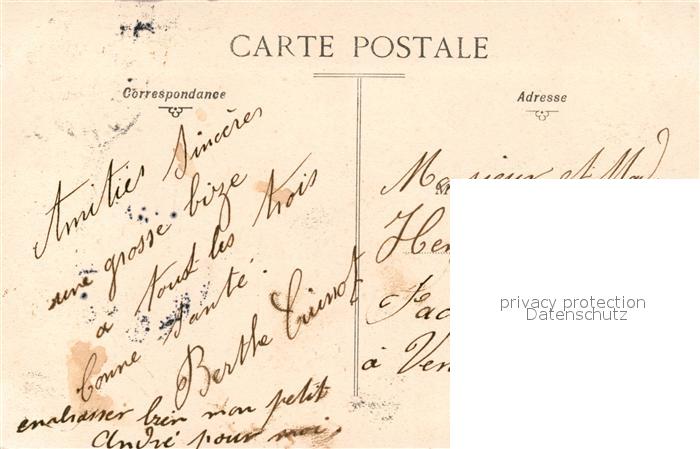 CARTE POSTALE
Correspondance
Adresse
Amitiés Sincères
une grosse bize
a tout les trois
bonne santé.
Berthe
embrasser bien mon petit
André pour moi.
Monsieur et Mad
Hen
Fac
à Ven
privacy protection
Datenschutz